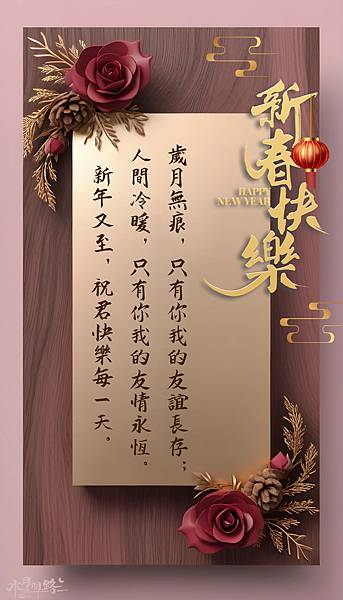 新春快樂
HAPPY
NEW YEAR
歲月無痕，只有你我的友誼長存；
人間冷暖，只有你我的友情永恆。
新年又至，祝君快樂每一天。